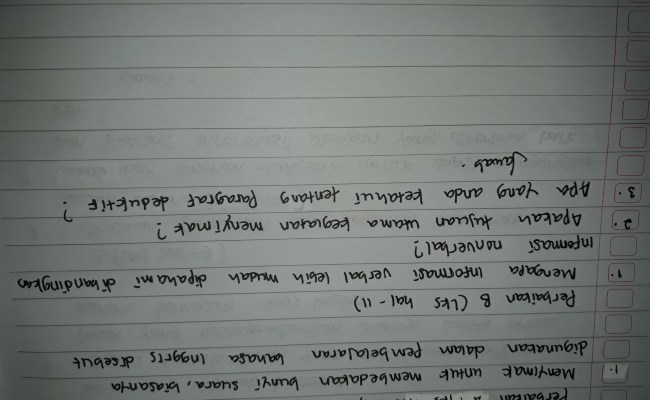 Perbaikan A
1. Menyimak untuk membedakan bunyi suara, biasanya
digunakan dalam pembelajaran bahasa Inggris disebut
Perbaikan B (LKS hal-11)
1. Mengapa informasi verbal lebih mudah dipahami dibandingkan
informasi nonverbal?
2. Apakah tujuan utama kegiatan menyimak?
3. Apa yang anda ketahui tentang paragraf deduktif?
Jawab.